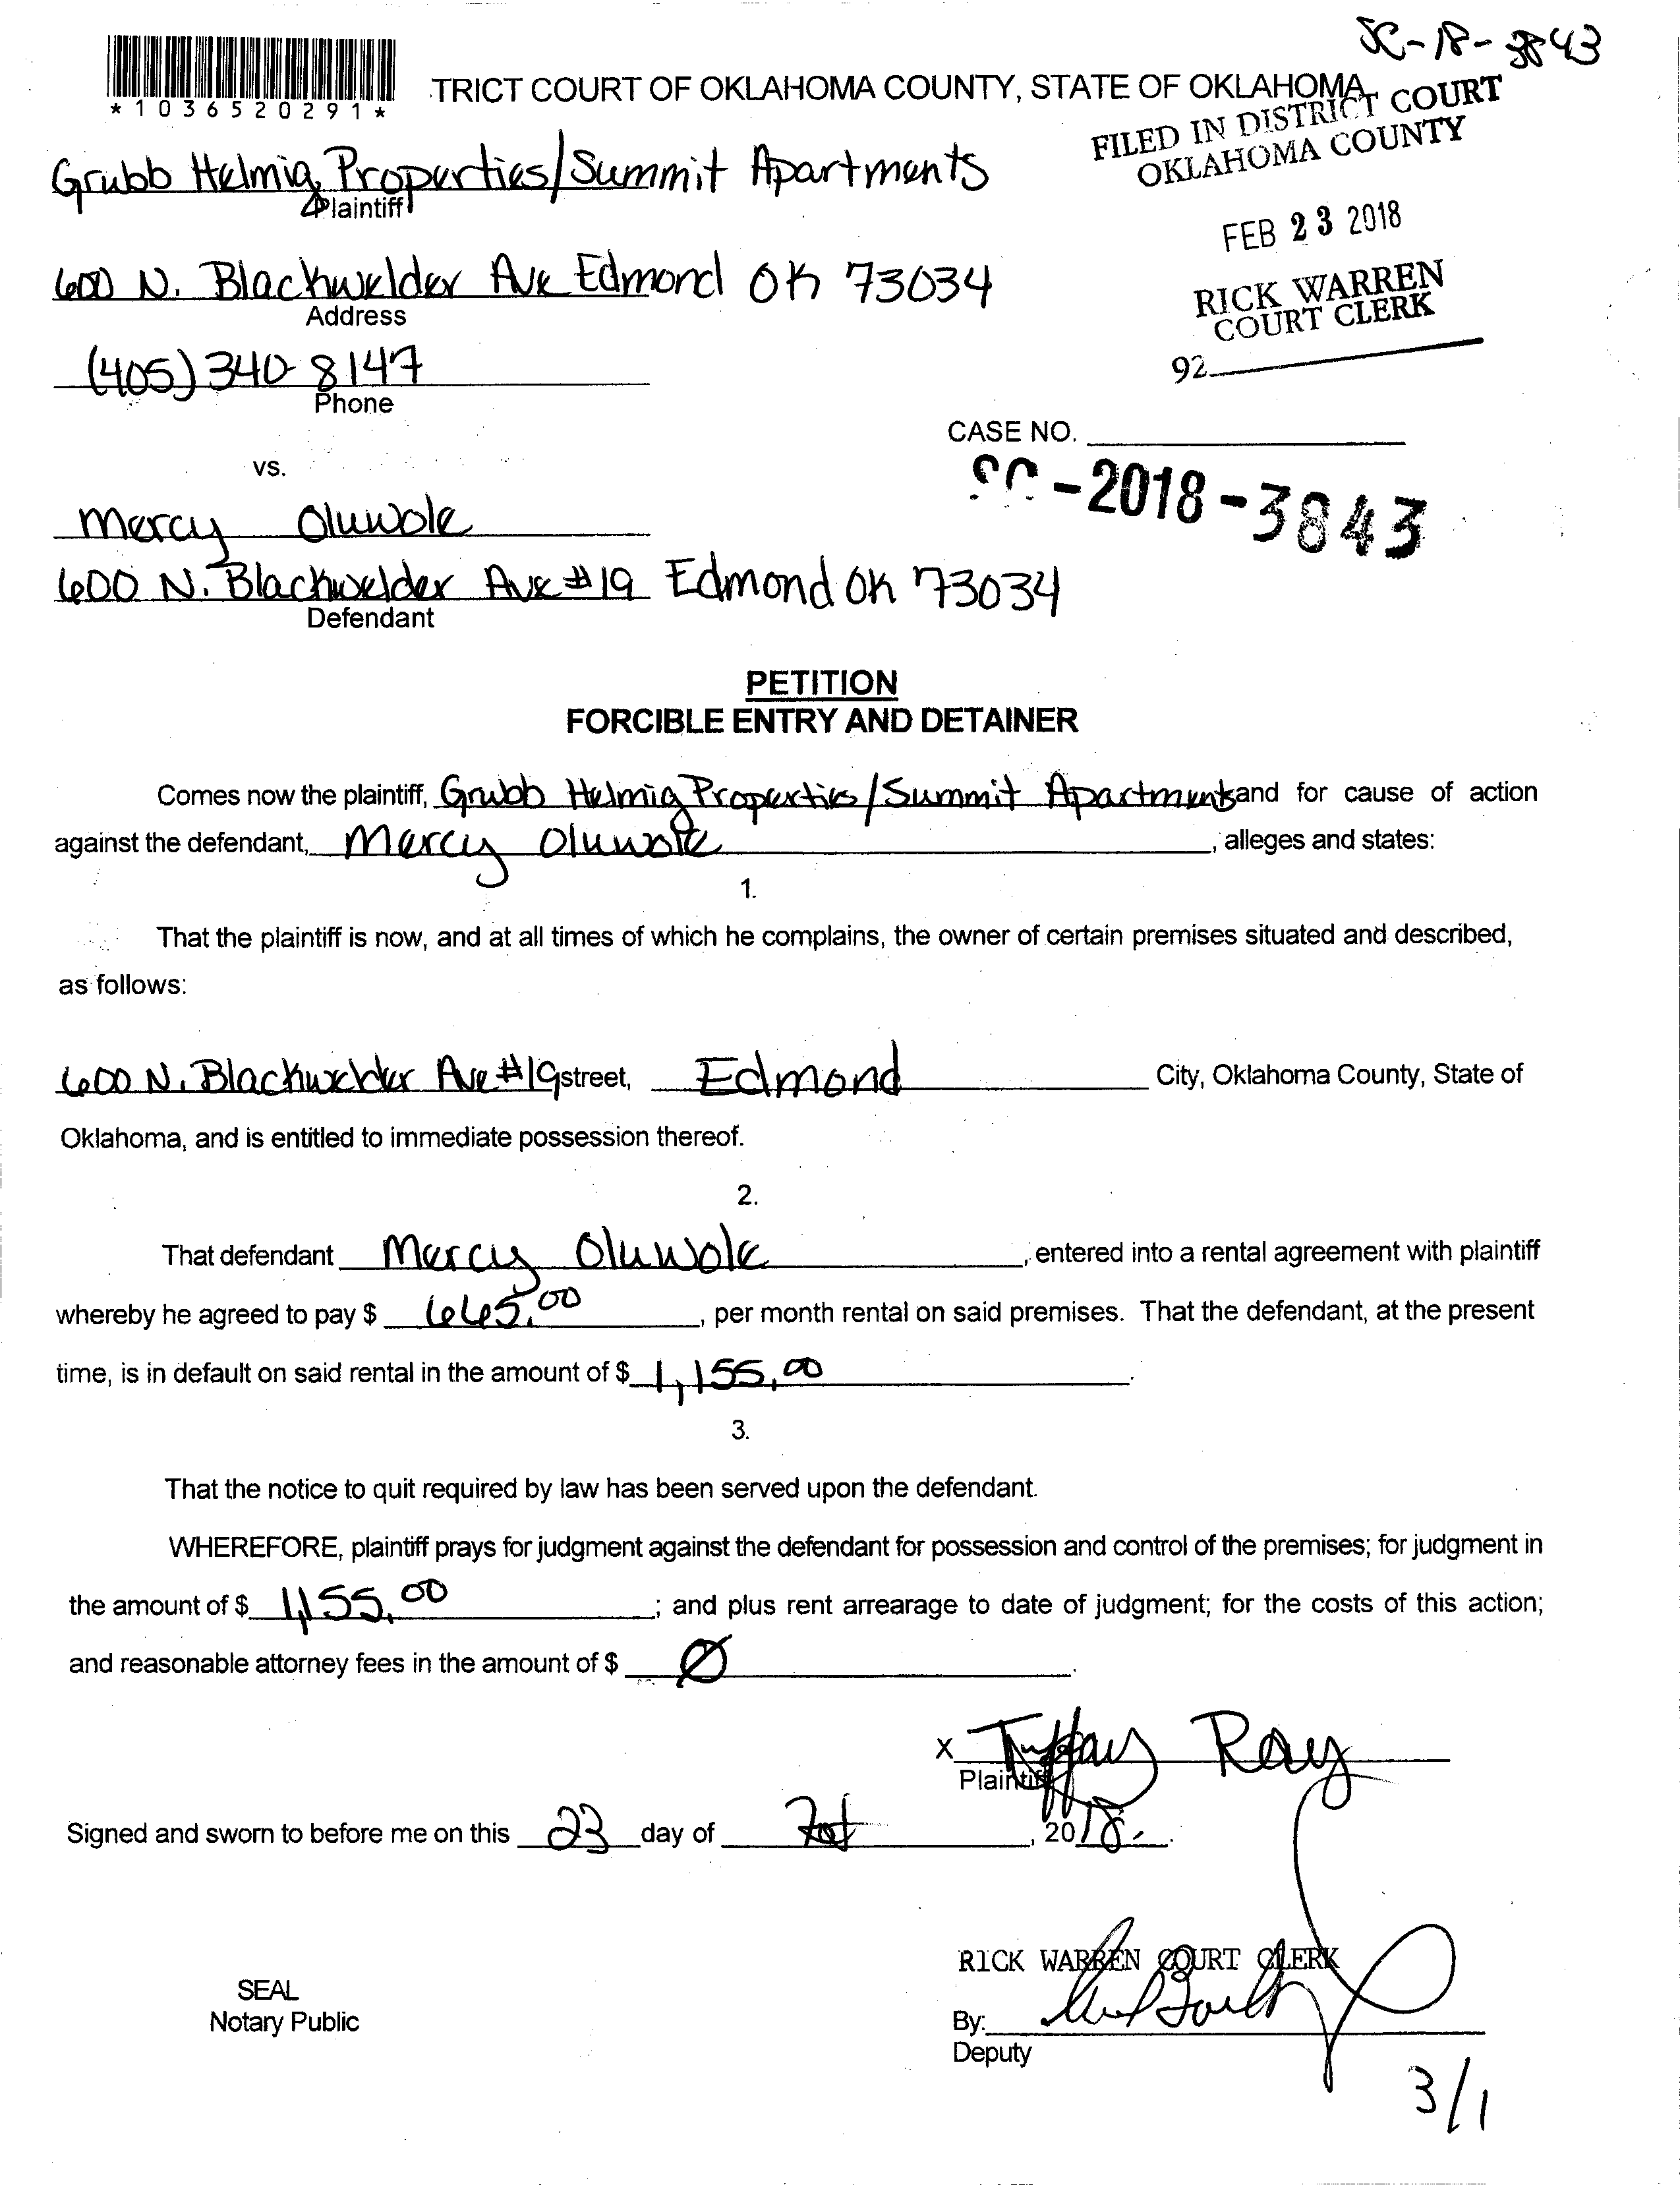 SC-18-3843
*1036520291*
TRICT COURT OF OKLAHOMA COUNTY, STATE OF OKLAHOMA
FILED IN DISTRICT COURT
OKLAHOMA COUNTY
Grubb Helmig Properties/Summit Apartments
Plaintiff
FEB 23 2018
600 N. Blackwelder Ave Edmond OK 73034
Address
RICK WARREN
COURT CLERK
92
(405) 340-8147
Phone
CASE NO.
vs.
SC-2018-3843
Mercy Oluwole
600 N. Blackwelder Ave #19 Edmond OK 73034
Defendant
PETITION
FORCIBLE ENTRY AND DETAINER
Comes now the plaintiff, Grubb Helmig Properties/Summit Apartments and for cause of action
against the defendant, Mercy Oluwole, alleges and states:
1.
That the plaintiff is now, and at all times of which he complains, the owner of certain premises situated and described,
as follows:
600 N. Blackwelder Ave #19 street, Edmond City, Oklahoma County, State of
Oklahoma, and is entitled to immediate possession thereof.
2.
That defendant Mercy Oluwole, entered into a rental agreement with plaintiff
whereby he agreed to pay $ 665.00, per month rental on said premises. That the defendant, at the present
time, is in default on said rental in the amount of $ 1,155.00.
3.
That the notice to quit required by law has been served upon the defendant.
WHEREFORE, plaintiff prays for judgment against the defendant for possession and control of the premises; for judgment in
the amount of $ 1,155.00; and plus rent arrearage to date of judgment; for the costs of this action;
and reasonable attorney fees in the amount of $ Ø.
X Tiffany Ray
Plaintiff
Signed and sworn to before me on this 23 day of Feb, 2018.
RICK WARREN COURT CLERK
SEAL
Notary Public
By:
Deputy
3/1